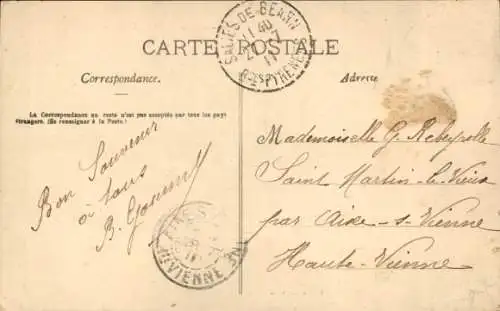 SALIES-DE-BEARN
11 40
11
BSES PYRENEES
CARTE POSTALE
Correspondance.
Adresse
La Correspondance au recto n'est pas acceptée par tous les pays
étrangers. (Se renseigner à la Poste.)
Bon Souvenir
à tous
Mademoiselle G. Rebeyrolle
Saint Martin-le-Vieux
par Aixe-s-Vienne
Haute-Vienne
VIENNE